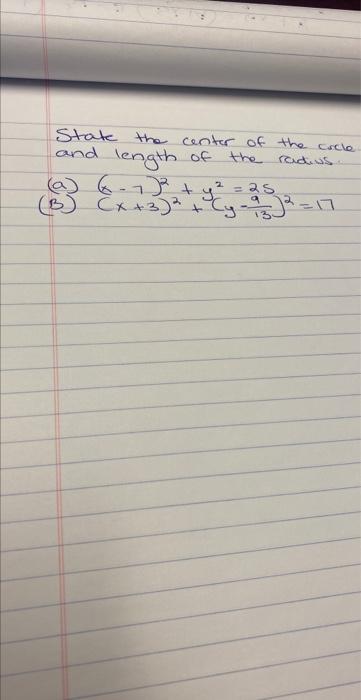 State the center of the circle
and length of the radius.
(a) (x - 7)² + y² = 25
(B) (x + 3)² + (y - 9/13)² = 17